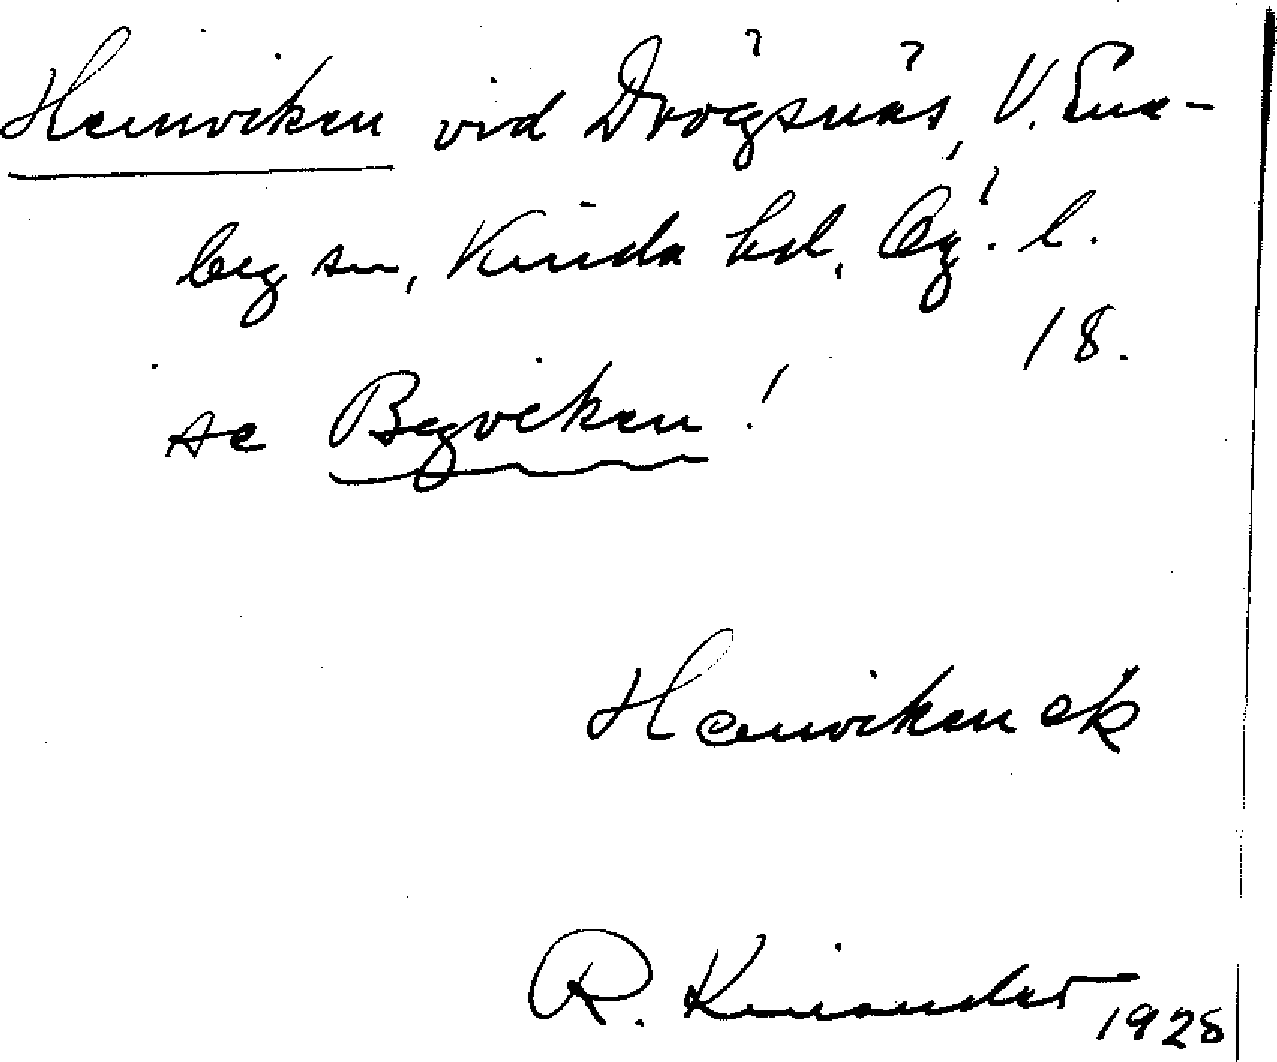 Hemviken vid Drögsnäs, V. Ene-
by sn, Kinda hd, Ög. l.
18.
se Byviken!
Hemviken ek
R. Kinander 1928